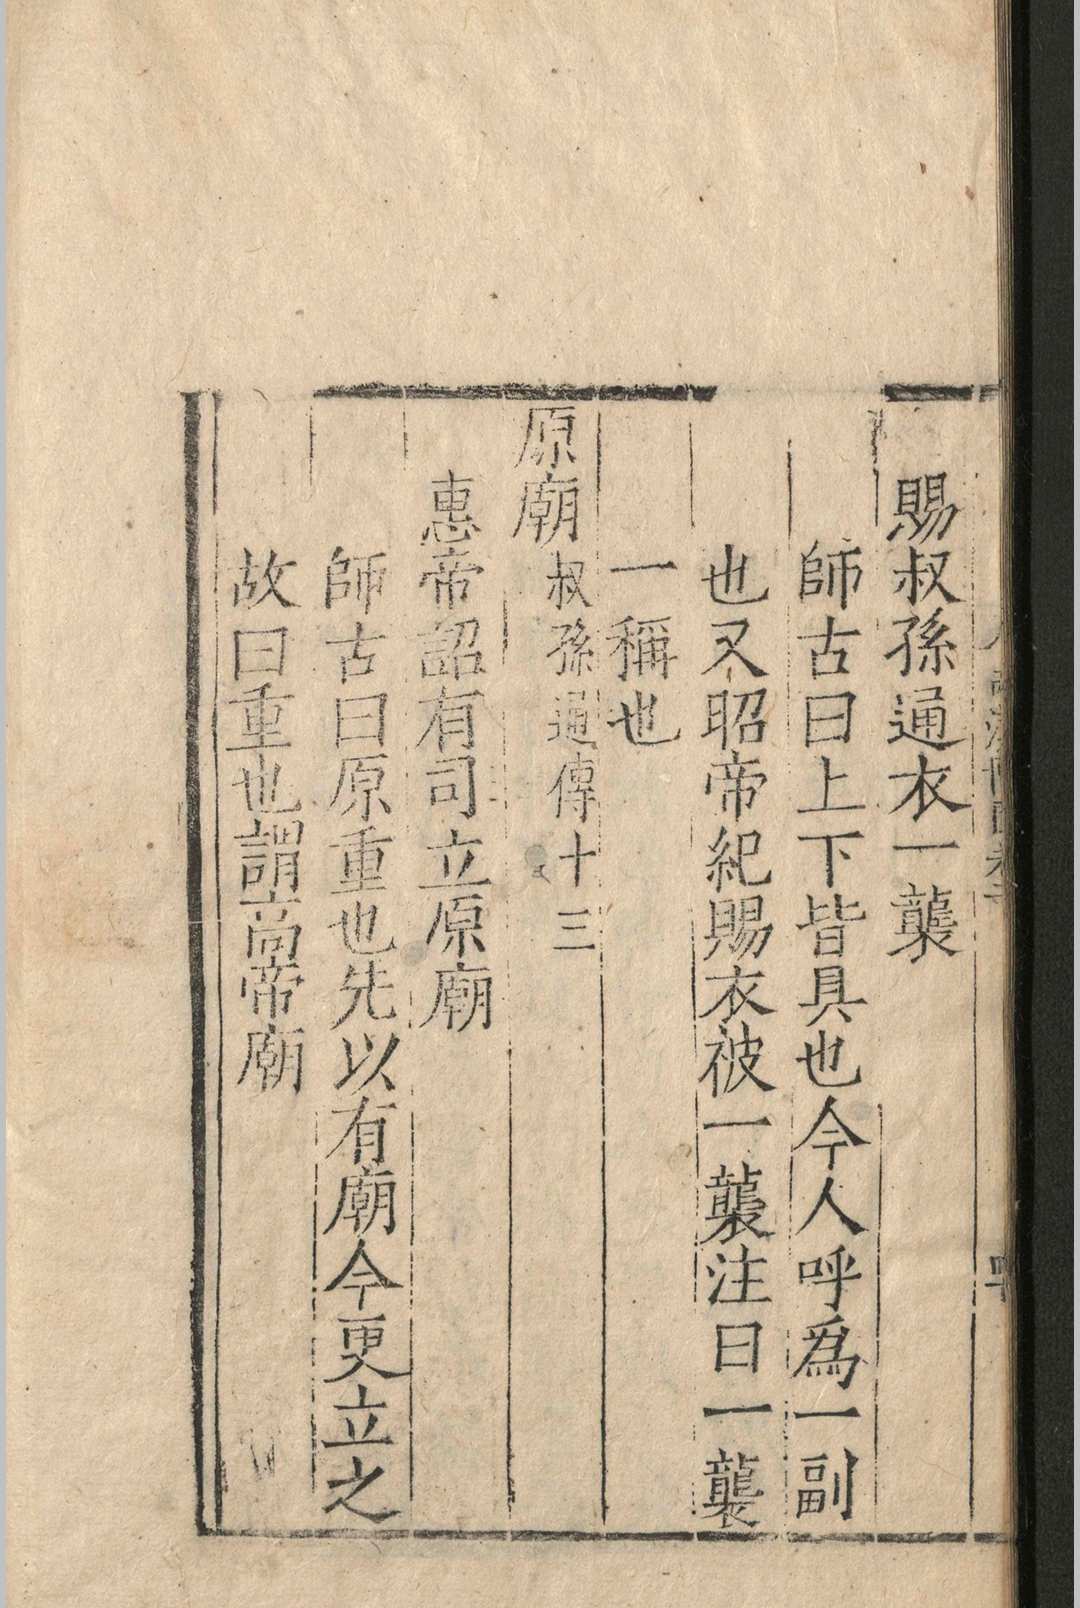 賜叔孫通衣一襲
師古曰上下皆具也今人呼爲一副
也又昭帝紀賜衣被一襲注曰一襲
一稱也
原廟叔孫通傳十三
惠帝詔有司立原廟
師古曰原重也先以有廟今更立之
故曰重也謂高帝廟